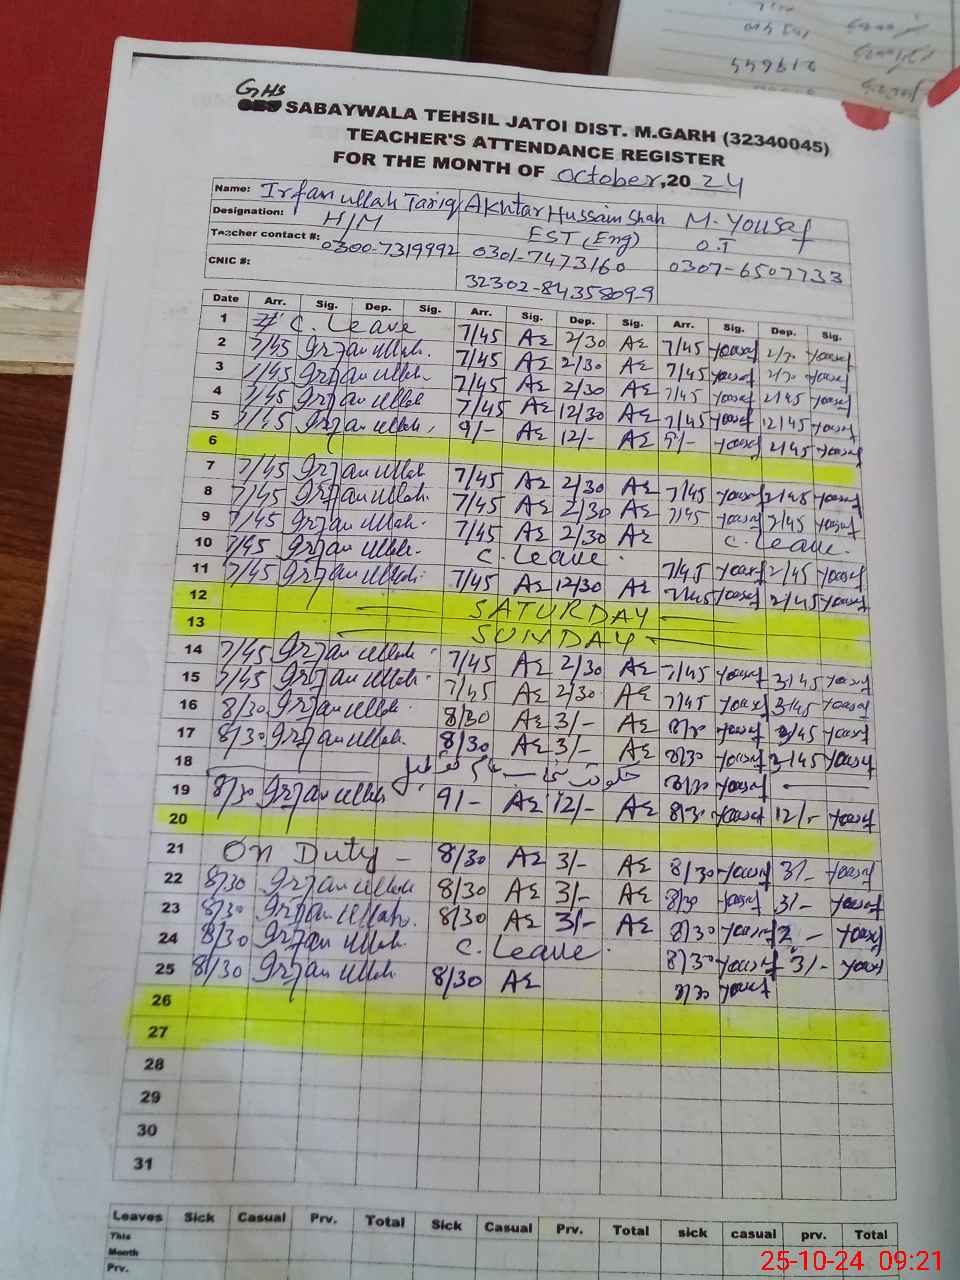 GHS
SABAYWALA TEHSIL JATOI DIST. M.GARH (32340045)
TEACHER'S ATTENDANCE REGISTER
FOR THE MONTH OF October, 20 24
Name: Irfan ullah Tariq Akhtar Hussain Shah M. Yousaf
Designation: H/M EST (Eng) O.T
Teacher contact #: 0300-7319992 0301-7473160 0307-6507733
CNIC #: 32302-8435809-9
Date Arr. Sig. Dep. Sig. Arr. Sig. Dep. Sig. Arr. Sig. Dep. Sig.
1 C. Leave 7/45 AΣ 2/30 AΣ 7/45 Yousaf Yousaf
2 7/45 Irfan ullah. 7/45 AΣ 2/30 AΣ 7/45 Yousaf Yousaf
3 7/45 Irfan ullah 7/45 AΣ 2/30 AΣ 7/45 Yousaf 2/45 Yousaf
4 7/45 Irfan ullah 7/45 AΣ 12/30 AΣ 7/45 Yousaf 12/45 Yousaf
5 7/45 Irfan ullah 9/- AΣ 12/- AΣ 9/- Yousaf Yousaf
6
7 7/45 Irfan ullah 7/45 AΣ 2/30 AΣ 7/45 Yousaf 2/45 Yousaf
8 7/45 Irfan ullah. 7/45 AΣ 2/30 AΣ 7/45 Yousaf 2/45 Yousaf
9 7/45 Irfan ullah. 7/45 AΣ 2/30 AΣ C. Leave.
10 7/45 Irfan ullah. C. Leave. 7/45 Yousaf 2/45 Yousaf
11 7/45 Irfan ullah. 7/45 AΣ 12/30 AΣ 7/45 Yousaf 2/45 Yousaf
12 SATURDAY
13 SUNDAY
14 7/45 Irfan ullah 7/45 AΣ 2/30 AΣ 7/45 Yousaf 3/45 Yousaf
15 7/45 Irfan ullah. 7/45 AΣ 2/30 AΣ 7/45 Yousaf 3/45 Yousaf
16 8/30 Irfan ullah. 8/30 AΣ 3/- AΣ 8/30 Yousaf 3/45 Yousaf
17 8/30 Irfan ullah. 8/30 AΣ 3/- AΣ 8/30 Yousaf 3/45 Yousaf
18 8/30 Yousaf
19 8/30 Irfan ullah 9/- AΣ 12/- AΣ 8/30 Yousaf 12/- Yousaf
20
21 On Duty - 8/30 AΣ 3/- AΣ 8/30 Yousaf 3/- Yousaf
22 8/30 Irfan ullah 8/30 AΣ 3/- AΣ 8/30 Yousaf 3/- Yousaf
23 8/30 Irfan ullah. 8/30 AΣ 3/- AΣ 8/30 Yousaf 2 - Yousaf
24 8/30 Irfan ullah. C. Leave. 8/30 Yousaf 3/- Yousaf
25 8/30 Irfan ullah 8/30 AΣ 8/30 Yousaf
26
27
28
29
30
31
Leaves Sick Casual Prv. Total Sick Casual Prv. Total sick casual prv. Total
This Month
Prv.
25-10-24 09:21